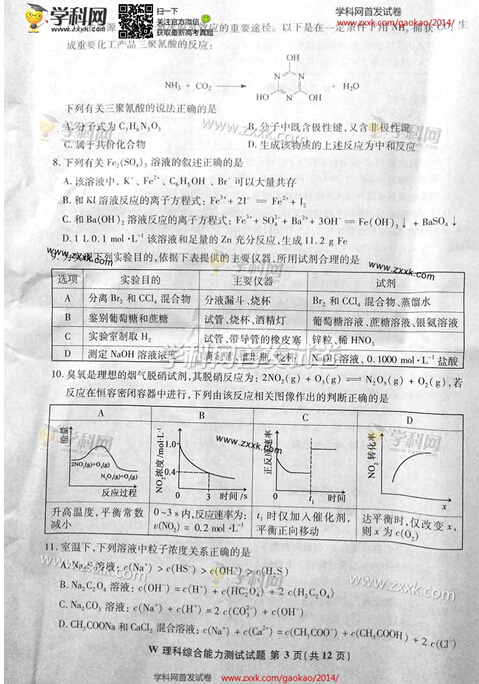 学科网首发试卷
www.zxxk.com/gaokao/2014/
学科网
www.zxxk.com
扫一扫
关注官方微信
获取最新高考真题
源 的重要途径。以下是在一定条件下用 NH₃ 捕获 CO₂ 生
成重要化工产品三聚氰酸的反应:
NH₃ + CO₂ → OH HO N N N OH + H₂O
下列有关三聚氰酸的说法正确的是
A.分子式为 C₃H₆N₃O₃ B.分子中既含极性键,又含非极性键
C.属于共价化合物 D.生成该物质的上述反应为中和反应
8.下列有关 Fe₂(SO₄)₃ 溶液的叙述正确的是
A.该溶液中,K⁺、Fe²⁺、C₆H₅OH、Br⁻ 可以大量共存
B.和 KI 溶液反应的离子方程式:Fe³⁺ + 2I⁻ ═ Fe²⁺ + I₂
C.和 Ba(OH)₂ 溶液反应的离子方程式:Fe³⁺ + SO₄²⁻ + Ba²⁺ + 3OH⁻ ═ Fe(OH)₃↓ + BaSO₄↓
D.1 L 0.1 mol·L⁻¹ 该溶液和足量的 Zn 充分反应,生成 11.2 g Fe
9.为实现下列实验目的,依据下表提供的主要仪器,所用试剂合理的是
选项 实验目的 主要仪器 试剂
A 分离 Br₂ 和 CCl₄ 混合物 分液漏斗、烧杯 Br₂ 和 CCl₄ 混合物、蒸馏水
B 鉴别葡萄糖和蔗糖 试管、烧杯、酒精灯 葡萄糖溶液、蔗糖溶液、银氨溶液
C 实验室制取 H₂ 试管、带导管的橡皮塞 锌粒、稀 HNO₃
D 测定 NaOH 溶液浓度 烧杯 NaOH 溶液、0.1000 mol·L⁻¹ 盐酸
学科网首发试卷
10.臭氧是理想的烟气脱硝试剂,其脱硝反应为:2NO₂(g) + O₃(g) ⇌ N₂O₅(g) + O₂(g),若
反应在恒容密闭容器中进行,下列由该反应相关图像作出的判断正确的是
A B C D
能量 2NO₂(g)+O₃(g) N₂O₅(g)+O₂(g) 反应过程
NO₂浓度/mol·L⁻¹ 1.0 0.4 0 3 时间/s
正反应速率 0 t₁ 时间
NO₂转化率 0 x
升高温度,平衡常数减小
0~3 s内,反应速率为:v(NO₂) = 0.2 mol·L⁻¹
t₁ 时仅加入催化剂,平衡正向移动
达平衡时,仅改变 x,则 x 为 c(O₂)
11.室温下,下列溶液中粒子浓度关系正确的是
A.Na₂S 溶液:c(Na⁺) > c(HS⁻) > c(OH⁻) > c(H₂S)
B.Na₂C₂O₄ 溶液:c(OH⁻) = c(H⁺) + c(HC₂O₄⁻) + 2c(H₂C₂O₄)
C.Na₂CO₃ 溶液:c(Na⁺) + c(H⁺) = 2c(CO₃²⁻) + c(OH⁻)
D.CH₃COONa 和 CaCl₂ 混合溶液:c(Na⁺) + c(Ca²⁺) = c(CH₃COO⁻) + c(CH₃COOH) + 2c(Cl⁻)
W 理科综合能力测试试题 第 3 页(共 12 页)
学科网首发试卷
www.zxxk.com/gaokao/2014/